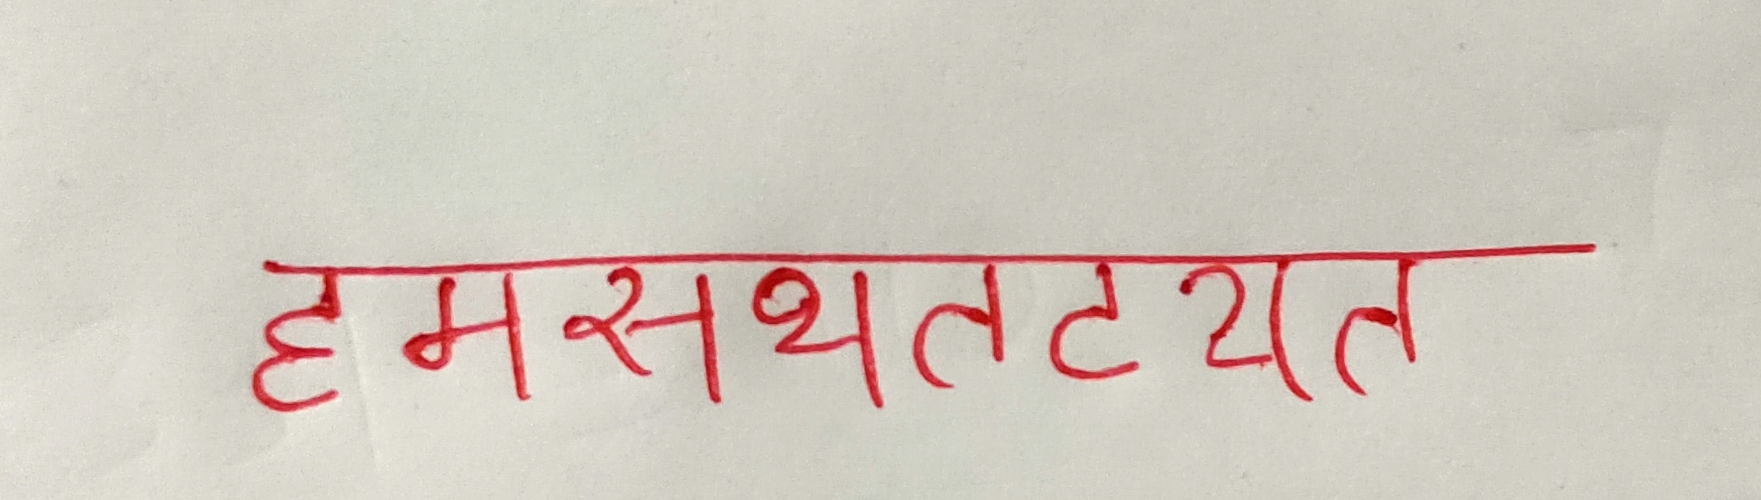 हमसथतटयत